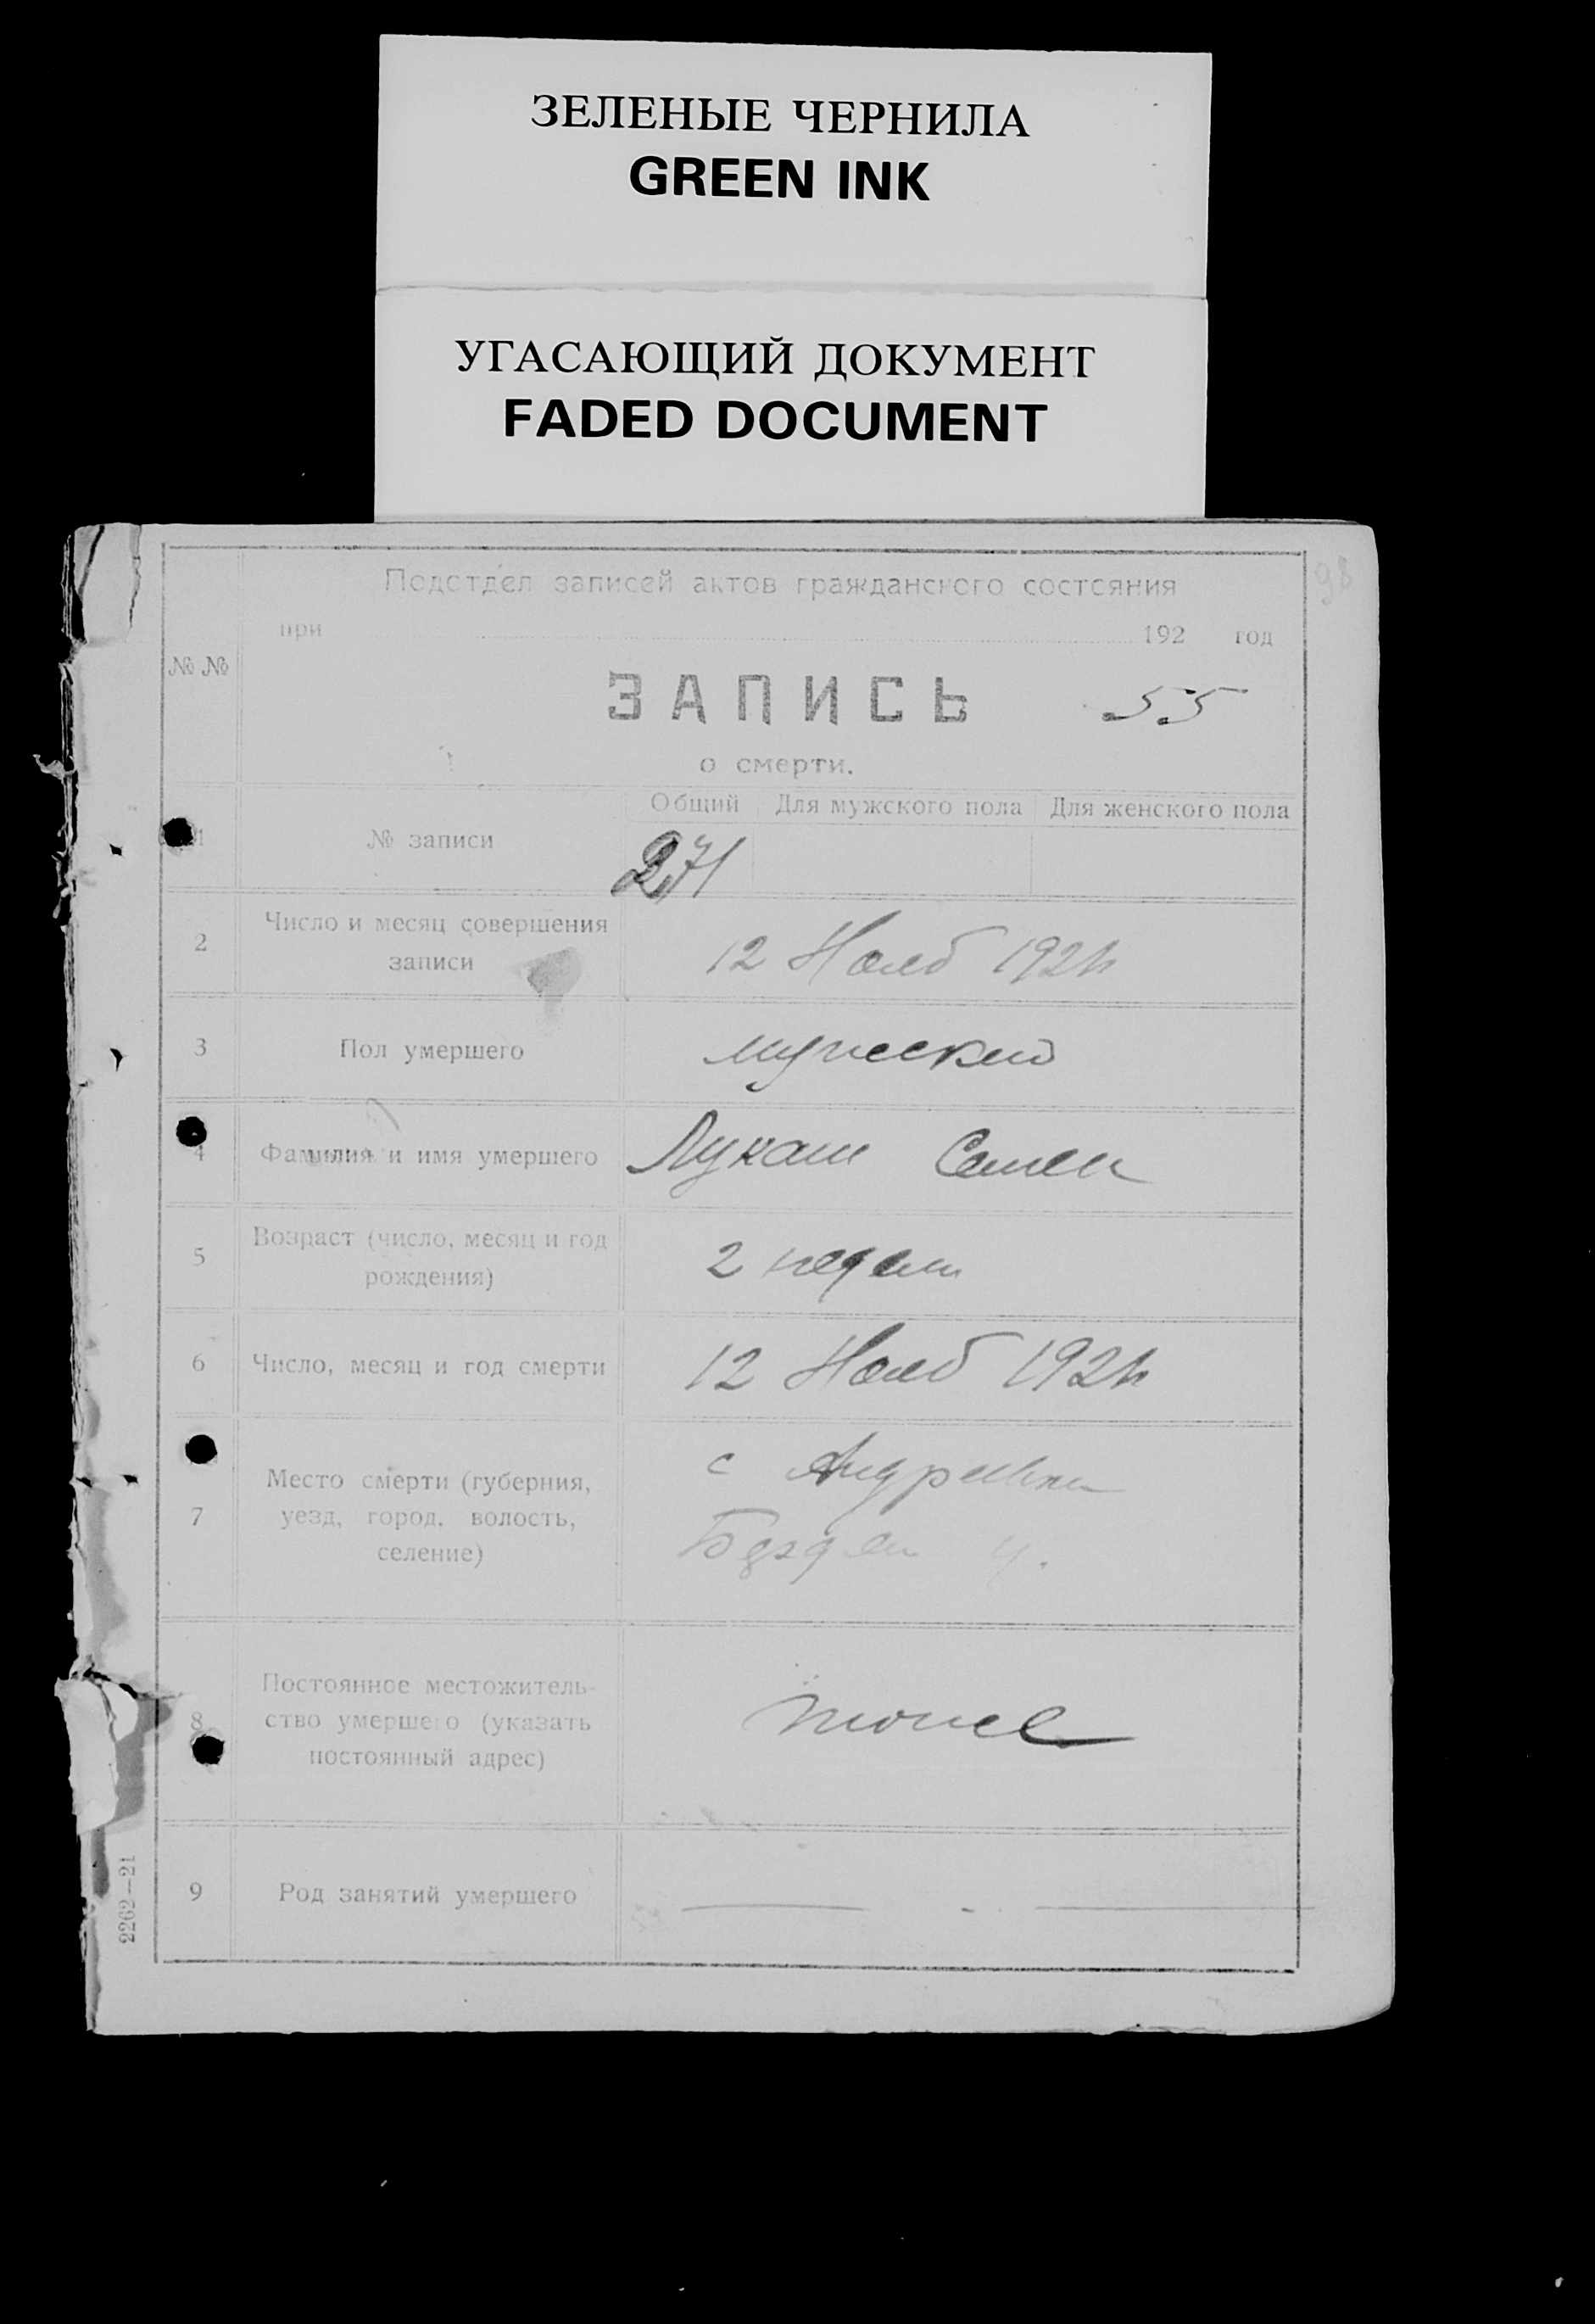 ЗЕЛЕНЫЕ ЧЕРНИЛА
GREEN INK
УГАСАЮЩИЙ ДОКУМЕНТ
FADED DOCUMENT
98
Подотдел записей актов гражданского состояния
при 192 год
№ №
ЗАПИСЬ 55
о смерти.
Общий Для мужского пола Для женского пола
1 № записи 271
2 Число и месяц совершения
записи
12 Нояб 192
3 Пол умершего мужеский
4 Фамилия и имя умершего Лукаш Семен
5 Возраст (число, месяц и год
рождения)
2 недели
6 Число, месяц и год смерти 12 Нояб 192
7 Место смерти (губерния,
уезд, город, волость,
селение)
с
у.
8 Постоянное местожитель-
ство умершего (указать
постоянный адрес)
тоже
9 Род занятий умершего
2262—21